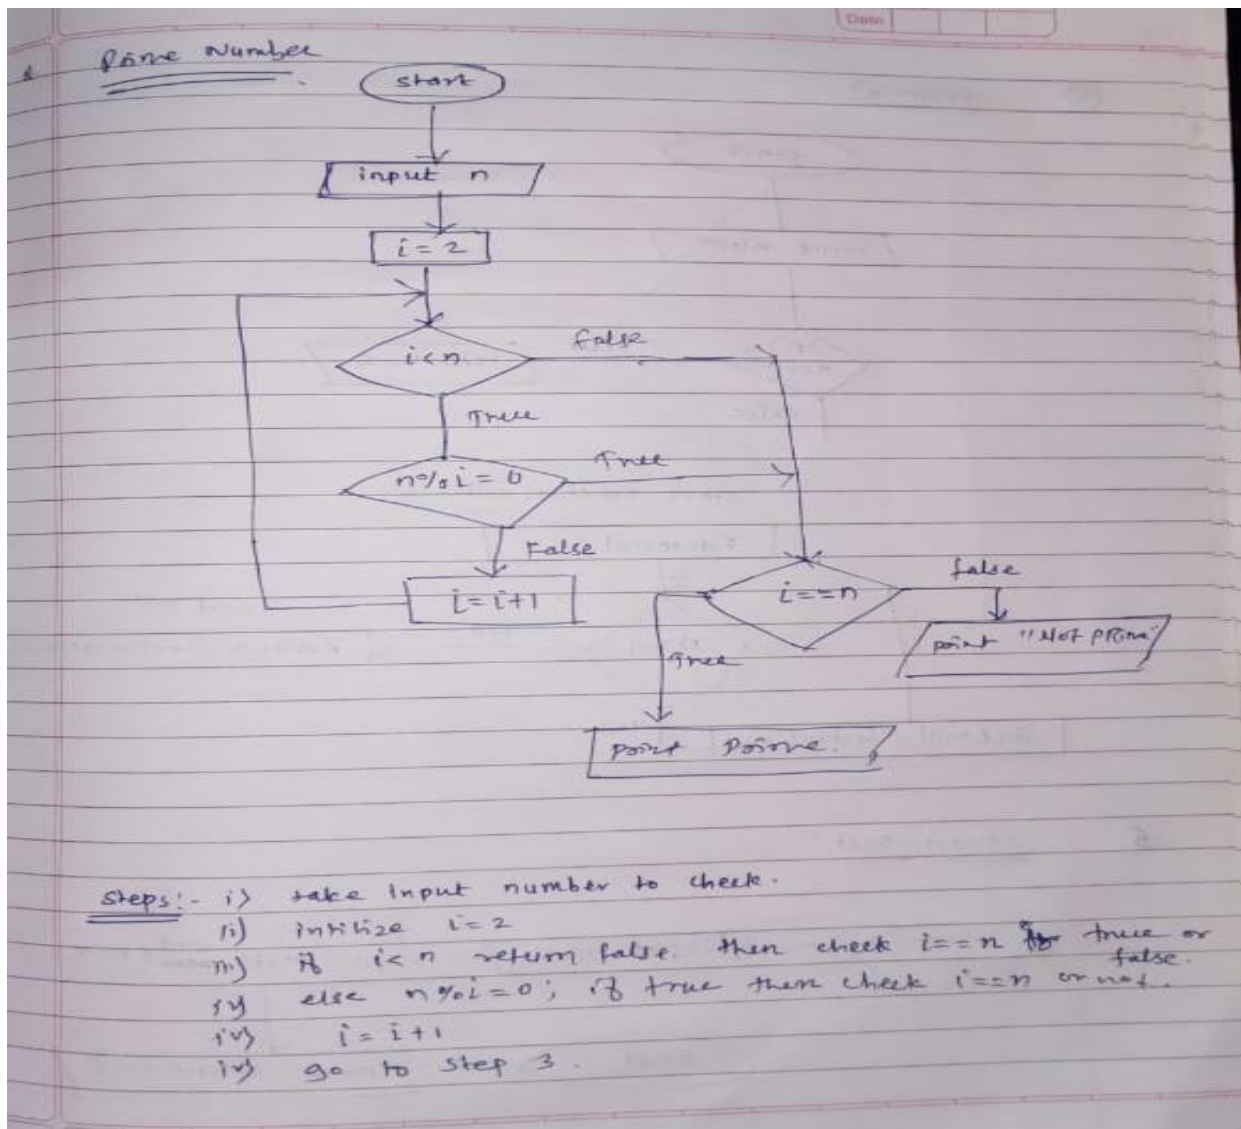 Date
Prime Number
start
input n
i = 2
i<n
false
True
n%i = 0
True
False
i=i+1
i==n
false
print "Not Prime"
True
print Prime.
Steps:- i) take input number to check.
ii) initilize i=2
iii) if i<n return false. then check i==n true or false.
iv) else n%i=0; if true then check i==n or not.
iv) i = i+1
iv) go to step 3.